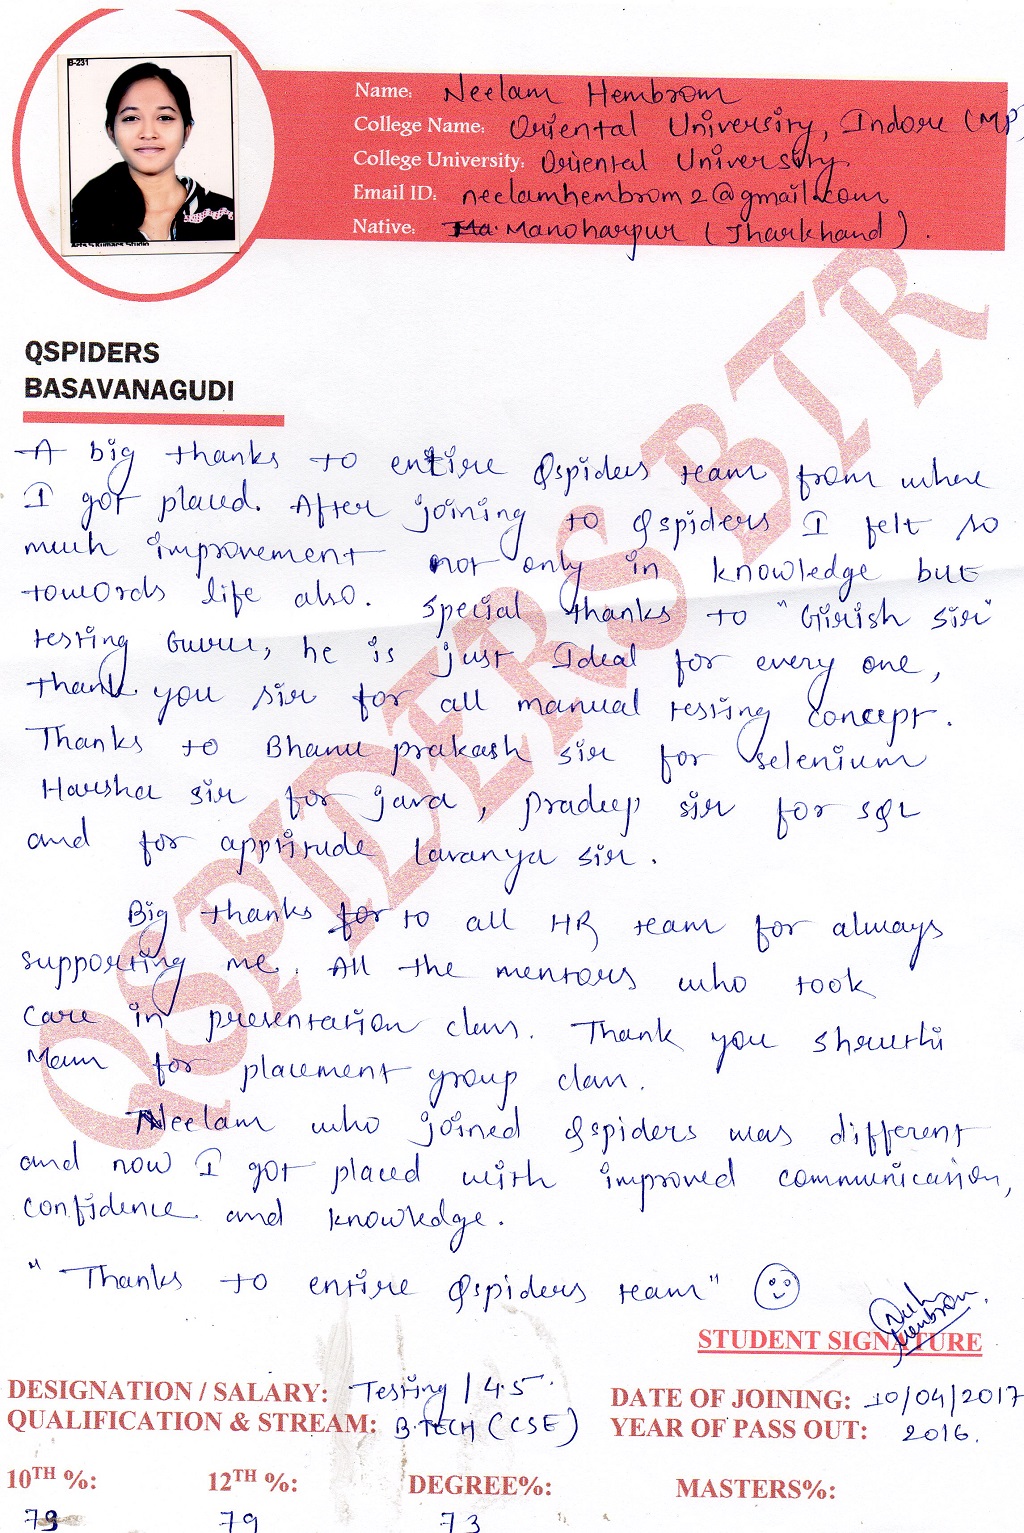 B-231
Arts S Kumars Studio
Name: Neelam Hembrom
College Name: Oriental University, Indore (MP)
College University: Oriental University
Email ID: neelamhembrom2@gmail.com
Native: Ma. Manoharpur (Jharkhand).
QSPIDERS
BASAVANAGUDI
QSPIDERS BTR
A big thanks to entire Qspiders team from where
I got placed. After joining to Qspiders I felt so
much improvement not only in knowledge but
towords life also. Special thanks to "Girish Sir"
testing Guru, he is just Ideal for every one,
thank you sir for all manual testing concept.
Thanks to Bhanu prakash sir for selenium
Harsha sir for java, pradeep sir for SQL
and for apptitude Lavanya sir.
Big thanks for to all HR team for always
supporting me. All the mentors who took
care in presentation class. Thank you Shruthi
Mam for placement group class.
Neelam who joined Qspiders was different
and now I got placed with improved communication,
confidence and knowledge.
" Thanks to entire Qspiders team"
Hembrom.
STUDENT SIGNATURE
DESIGNATION / SALARY: Testing / 4.5 DATE OF JOINING: 10/04/2017
QUALIFICATION & STREAM: B.TECH (CSE) YEAR OF PASS OUT: 2016.
10TH %: 12TH %: DEGREE%: MASTERS%:
79 79 73